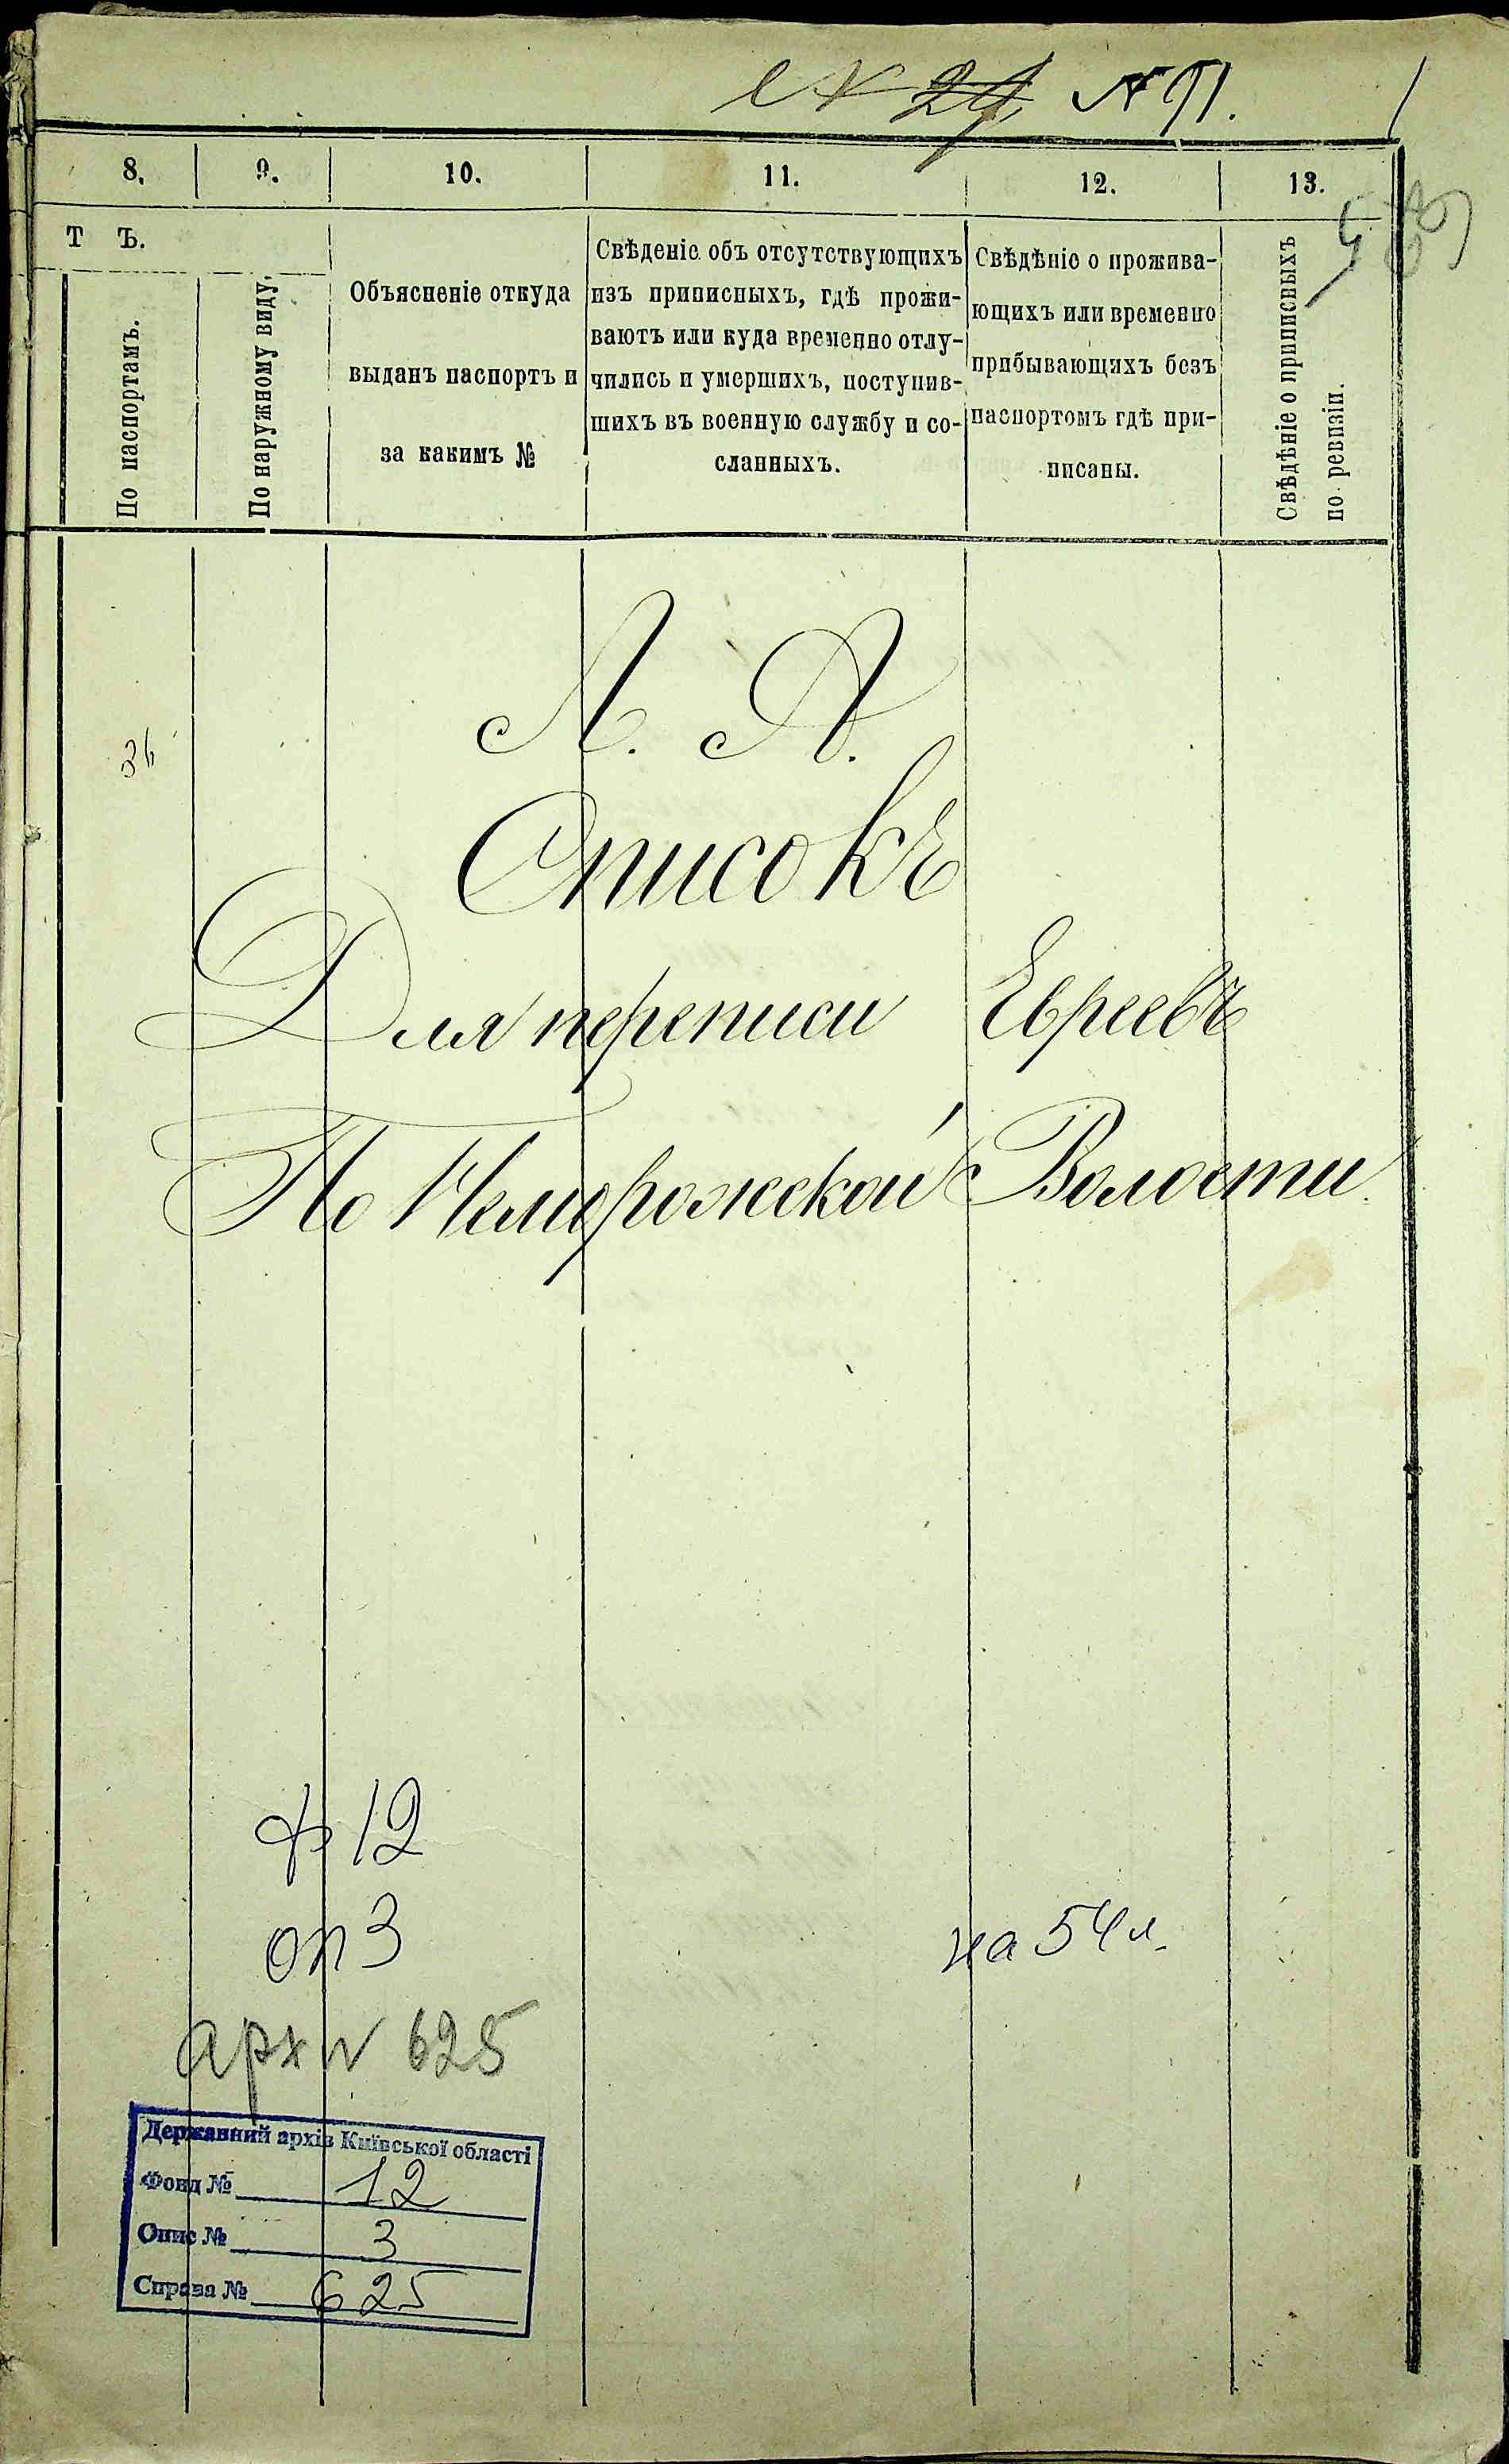 № 91.
8. 9. 10. 11. 12. 13.
Т Ъ.
По паспортамъ.
По наружному виду.
Объясненіе откуда
выданъ паспортъ и
за какимъ №
Свѣденіе объ отсутствующихъ
изъ приписныхъ, гдѣ прожи-
ваютъ или куда временно отлу-
чились и умершихъ, поступив-
шихъ въ военную службу и со-
сланныхъ.
Свѣдѣніе о прожива-
ющихъ или временно
прибывающихъ безъ
паспортомъ гдѣ при-
писаны.
Свѣдѣніе о приписныхъ
по ревизіи.
Л. А.
Списокъ
Для переписи Евреевъ
По Неморожской Волости
ф 12
оп 3
на 54 л.
арх № 625
Державний архів Київської області
Фонд № 12
Опис № 3
Справа № 625